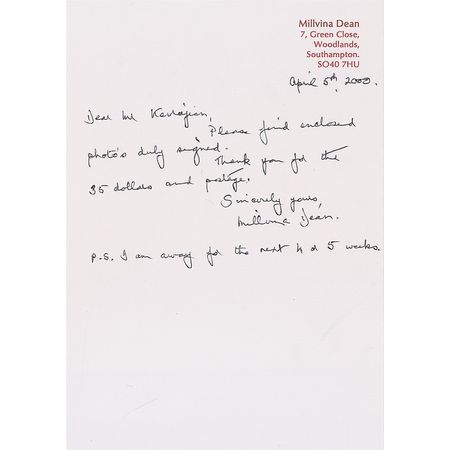 Millvina Dean
7, Green Close,
Woodlands,
Southampton.
SO40 7HU
April 5th, 2000.
Dear Mr
Please find enclosed
photo's duly signed.
Thank you for the
35 dollars and postage.
Sincerely yours,
Millvina Dean.
P.S. I am away for the next 4 or 5 weeks.